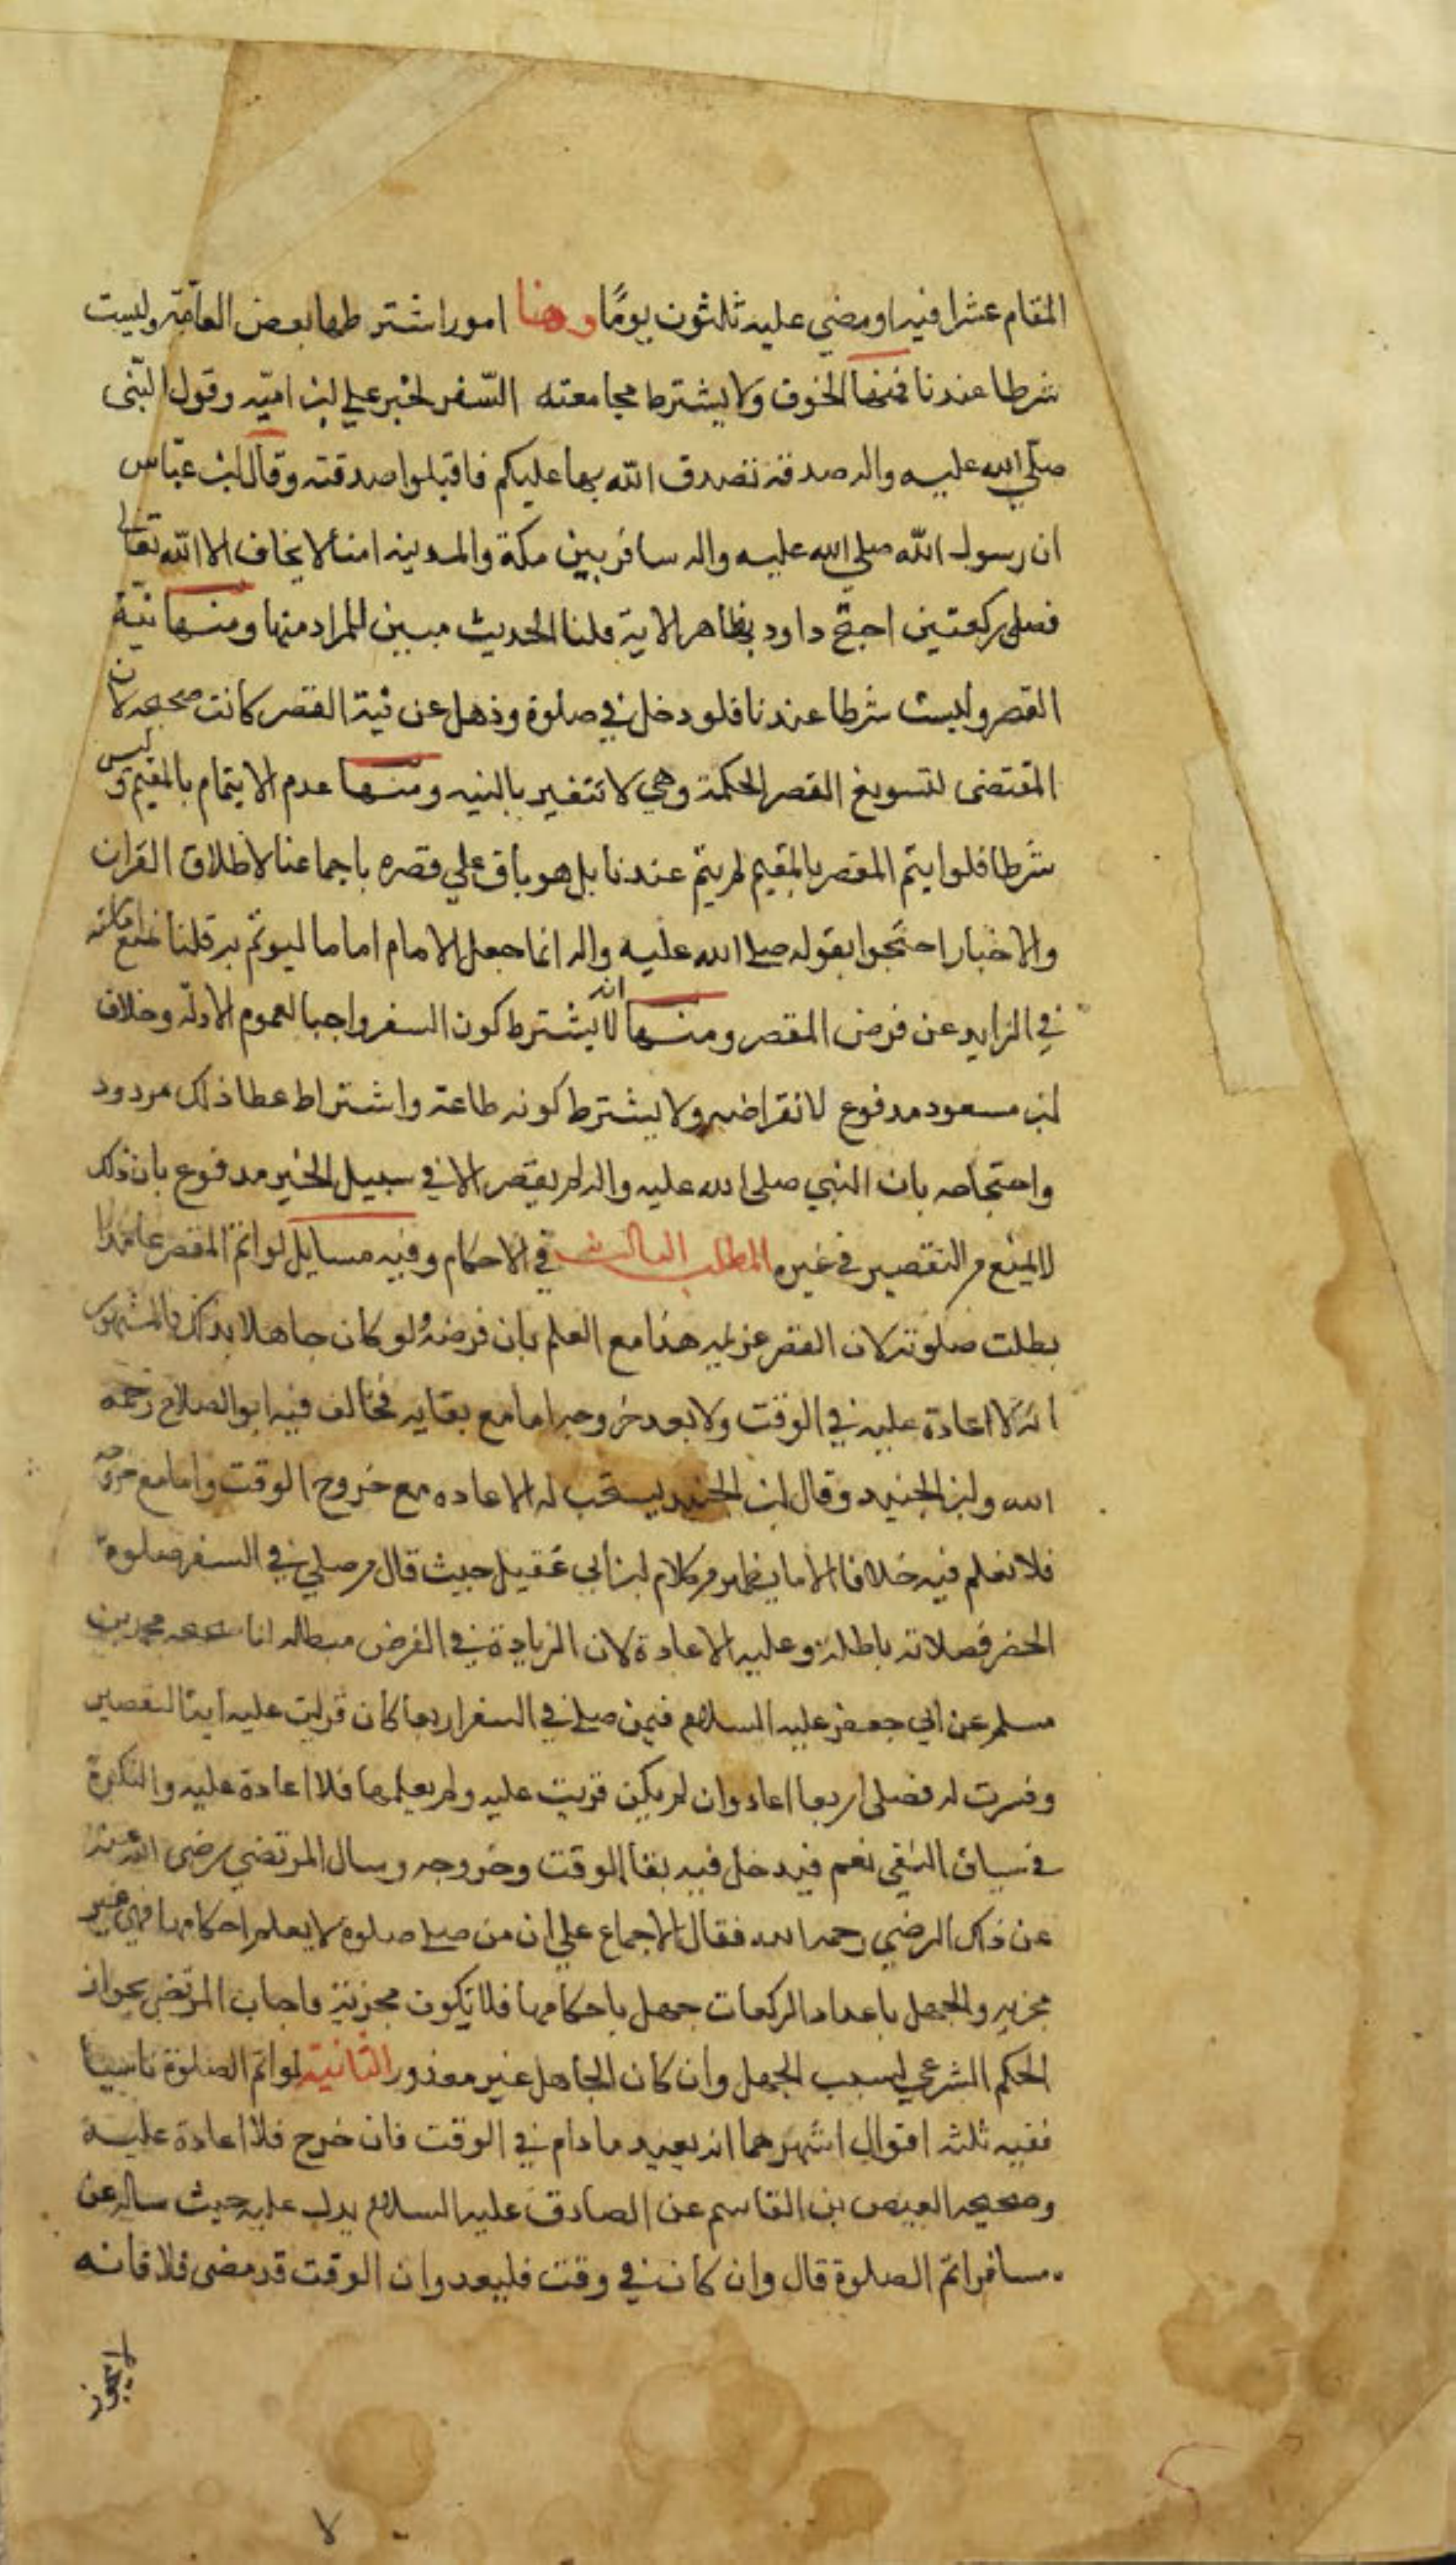 المقام عشرا فيه او مضى عليه ثلثون يومًا وهنا امور اشترطها بعض العامّة وليست
شرطا عندنا فمنها الخوف ولا يشترط مجامعته السّفر لخبر على لبن اميّه وقول النّبى
صلّى الله عليه واله صدقة تصدق الله بها عليكم فاقبلوا صدقته وقال ابن عبّاس
ان رسول الله صلى الله عليه واله سافر بين مكة والمدينه امنا لا يخاف الا الله تعالى
فصلى ركعتين احتجّ داود بظاهر الاية قلنا الحديث مبين للمراد منها ومنها نيّة
القصر وليست شرطا عندنا فلو دخل في صلوة وذهل عن نية القصر كانت صحيحه لان
المقتضى لتسويغ القصر الحكمة وهي لا تتغير بالنيه ومنها عدم الايتمام بالمقيم وليس
شرطا فلو ايتم المقصر بالمقيم لم يتم عندنا بل هو باق على قصره باجماعنا لاطلاق القران
والاخبار احتجوا بقوله صلى الله عليه واله انما جعل الامام اماما ليوتم به قلنا نمنع امكانه
في الزايد عن فرض المقصر ومنها انه لا يشترط كون السفر واجبا لعموم الادلّة وخلاف
ابن مسعود مدفوع لانقراضه ولا يشترط كونه طاعة واشتراط عطا ذلك مردود
واحتجاجه بان النبي صلى الله عليه واله لم يقصر الا في سبيل الخير مدفوع بان ذلك
لا يمنع من التقصير في غيره المطلب الثالث في الاحكام وفيه مسايل لو اتم المقصر عامدا
بطلت صلوته لان القصر عزيمه هذا مع العلم بان فرضه ولو كان جاهلا بذلك فالمشهور
انه لا اعادة عليه في الوقت ولا بعد خروجه اما مع بقايه فخالف فيه ابو الصلاح رحمه
الله وابن الجنيد وقال ابن الجنيد يستحب له الاعاده مع خروج الوقت واما مع خروجه
فلا نعلم فيه خلافا الا ما يظهر من كلام ابن ابي عقيل حيث قال من صلى في السفر صلوة
الحضر فصلاته باطلة وعليه الاعادة لان الزيادة في الفرض مبطله لنا صحيحه محمد بن
مسلم عن ابي جعفر عليه السلام فيمن صلى في السفر اربعا كان قريت عليه اية التقصير
وفسرت له فصلى اربعا اعاد وان لم يكن قريت عليه ولم يعلمها فلا اعادة عليه والنكرة
في سياق النفي تعم فيدخل فيه بقا الوقت وخروجه وسال المرتضي رضي الله عنه
عن ذلك الرضي رحمه الله فقال الاجماع على ان من صلى صلوة لا يعلم احكامها فهى غير
مجزيه والجهل باعداد الركعات جهل باحكامها فلا تكون مجزية فاجاب المرتضى بجواز
الحكم الشرعي بسبب الجهل وان كان الجاهل غير معذور الثّانية لو اتم الصلوة ناسيا
ففيه ثلثه اقوال اشهرها انه يعيد ما دام في الوقت فان خرج فلا اعادة عليه
وصحيحه العيص بن القاسم عن الصادق عليه السلام يدل عليه حيث ساله عن
مسافر اتم الصلوة قال وان كان في وقت فليعد وان الوقت قد مضى فلا فانه
لا يجوز